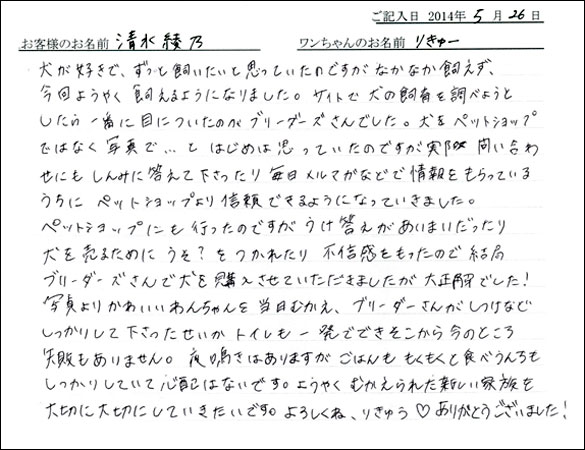 ご記入日 2014年 5 月 26 日
お客様のお名前 清水綾乃 ワンちゃんのお名前 りきゅー
犬が好きで、ずっと飼いたいと思っていたのですがなかなか飼えず、
今回ようやく飼えるようになりました。サイトで犬の飼育を調べようと
したら一番に目についたのがブリーダーズさんでした。犬をペットショップ
ではなく写真で…と はじめは思っていたのですが実際 問い合わ
せにもしんみに答えて下さったり毎日メルマガなどで情報をもらっている
うちに ペットショップより信頼できるようになっていきました。
ペットショップにも行ったのですがうけ答えがあいまいだったり
犬を売るために うそ?をつかれたり 不信感をもったので結局
ブリーダーズさんで犬を購入させていただきましたが 大正解でした!
写真よりかわいいわんちゃんを当日むかえ、ブリーダーさんがしつけなど
しっかりして下さったせいかトイレも一発でできそこから今のところ
失敗もありません。夜鳴きはありますがごはんももくもくと食べうんちも
しっかりしていて心配はないです。ようやくむかえられた新しい家族を
大切に大切にしていきたいです。よろしくね、りきゅう♡ありがとうございました!